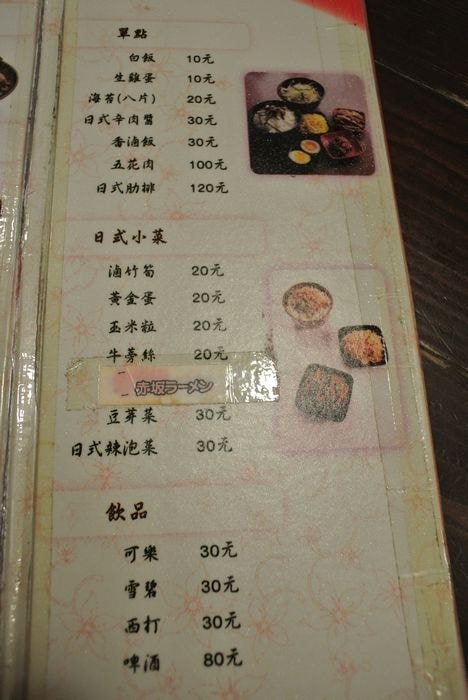 單點
白飯 10元
生雞蛋 10元
海苔(八片) 20元
日式辛肉醬 30元
香滷飯 30元
五花肉 100元
日式肋排 120元
日式小菜
滷竹筍 20元
黃金蛋 20元
玉米粒 20元
牛蒡絲 20元
赤坂ラーメン
豆芽菜 30元
日式辣泡菜 30元
飲品
可樂 30元
雪碧 30元
西打 30元
啤酒 80元